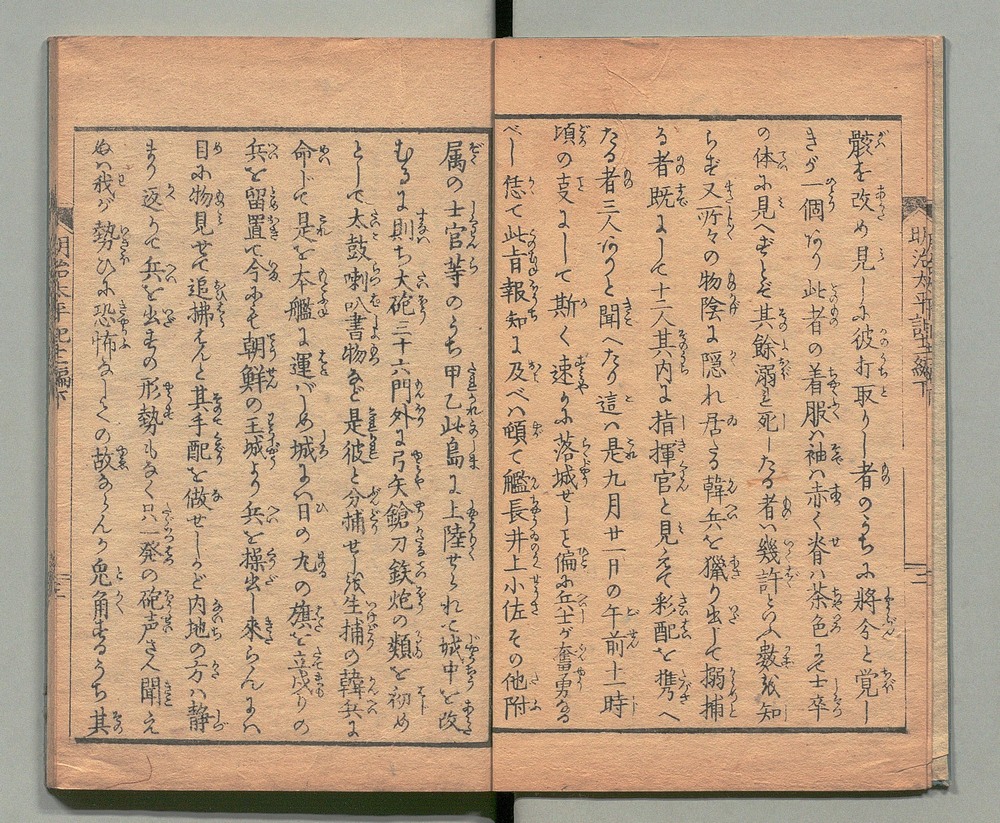 骸を改め見しに彼打取りし者のうちに將令と覚し
きが一個あり此者の着服ハ袖ハ赤く脊ハ茶色にて士卒
の体に見へずとぞ其餘溺死したる者ハ幾許といふ數を知
らず又所々の物陰に隠れ居たる韓兵を獵り出して搦捕
る者既にして十二人其内に指揮官と見えて彩配を携へ
たる者三人ありと聞へたり這ハ是九月廿一日の午前十二時
頃の支にして斯く速かに落城せしも偏に兵士が奮勇なる
べし偖て此旨報知に及べハ頓て艦長井上小佐その他附
属の士官等のうち甲乙此島に上陸せられて城中を改
むるに則ち大砲三十六門外に弓矢鎗刀鉄炮の類を初め
として太鼓喇叭書物など是彼と分捕せし後生捕の韓兵に
命じて是を本艦に運ばしめ城にハ日の丸の旗を立戍りの
兵を留置て今にも朝鮮の王城より兵を操出し來らんにハ
目に物見せて追拂はんと其手配を做せしかど内地の方ハ静
まり返りて兵を出すの形勢もなく只一発の砲声さへ聞え
ぬハ我が勢ひに恐怖なしての故ならんか兎角するうち其
明治太平記十二編下